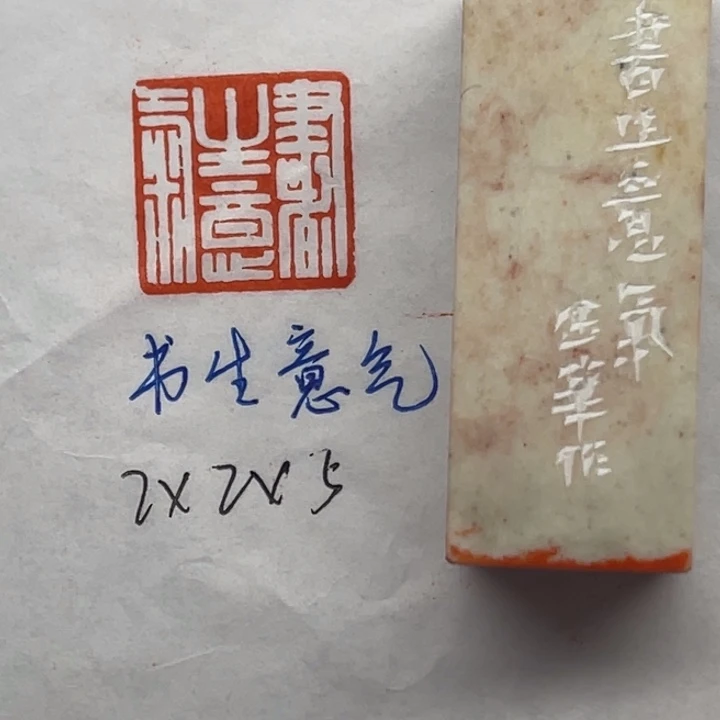 書生意氣
书生意气
2X2X5
書生意氣
金華作